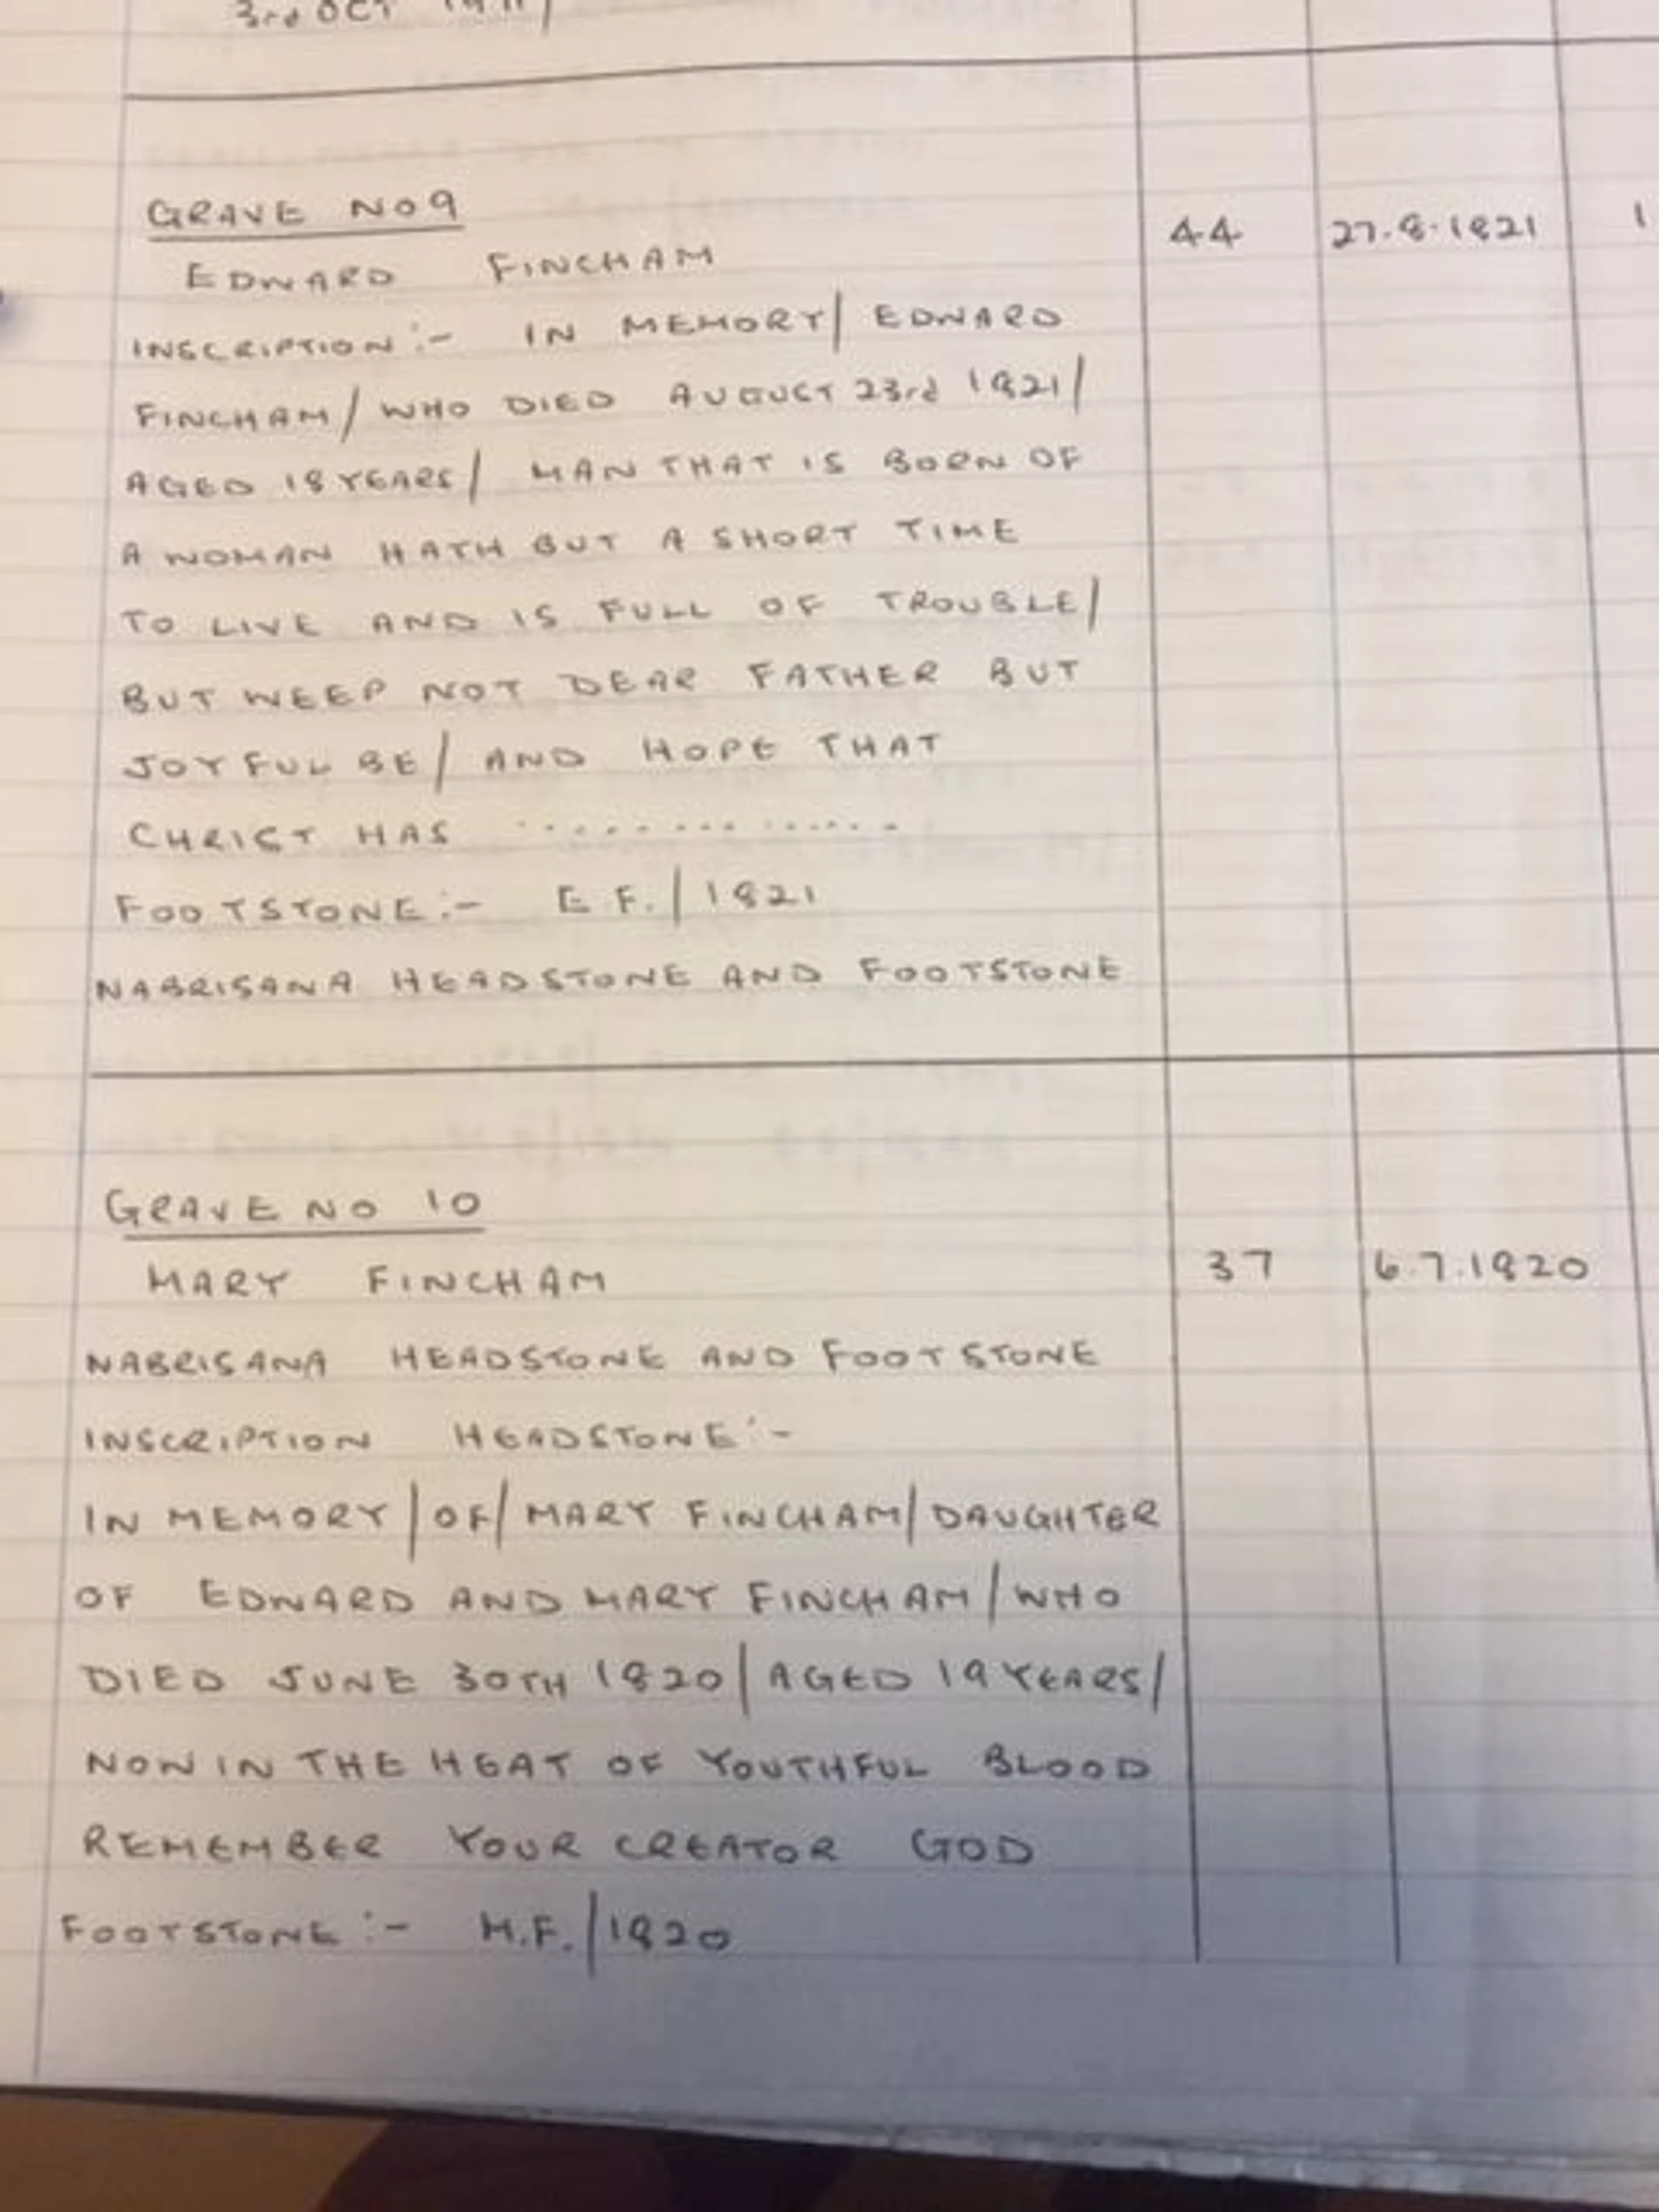 3rd OCT
GRAVE NO 9
44 27.8.1821 1
EDWARD FINCHAM
INSCRIPTION :- IN MEMORY/ EDWARD
FINCHAM/ WHO DIED AUGUST 23rd 1821/
AGED 18 YEARS/ MAN THAT IS BORN OF
A WOMAN HATH BUT A SHORT TIME
TO LIVE AND IS FULL OF TROUBLE/
BUT WEEP NOT DEAR FATHER BUT
JOYFUL BE/ AND HOPE THAT
CHRIST HAS ..............
FOOTSTONE :- E.F./ 1821
NABRISANA HEADSTONE AND FOOTSTONE
GRAVE NO 10
MARY FINCHAM 37 6.7.1820
NABRISANA HEADSTONE AND FOOTSTONE
INSCRIPTION HEADSTONE :-
IN MEMORY/ OF/ MARY FINCHAM/ DAUGHTER
OF EDWARD AND MARY FINCHAM/ WHO
DIED JUNE 30TH 1820/ AGED 19 YEARS/
NOW IN THE HEAT OF YOUTHFUL BLOOD
REMEMBER YOUR CREATOR GOD
FOOTSTONE :- M.F./ 1820